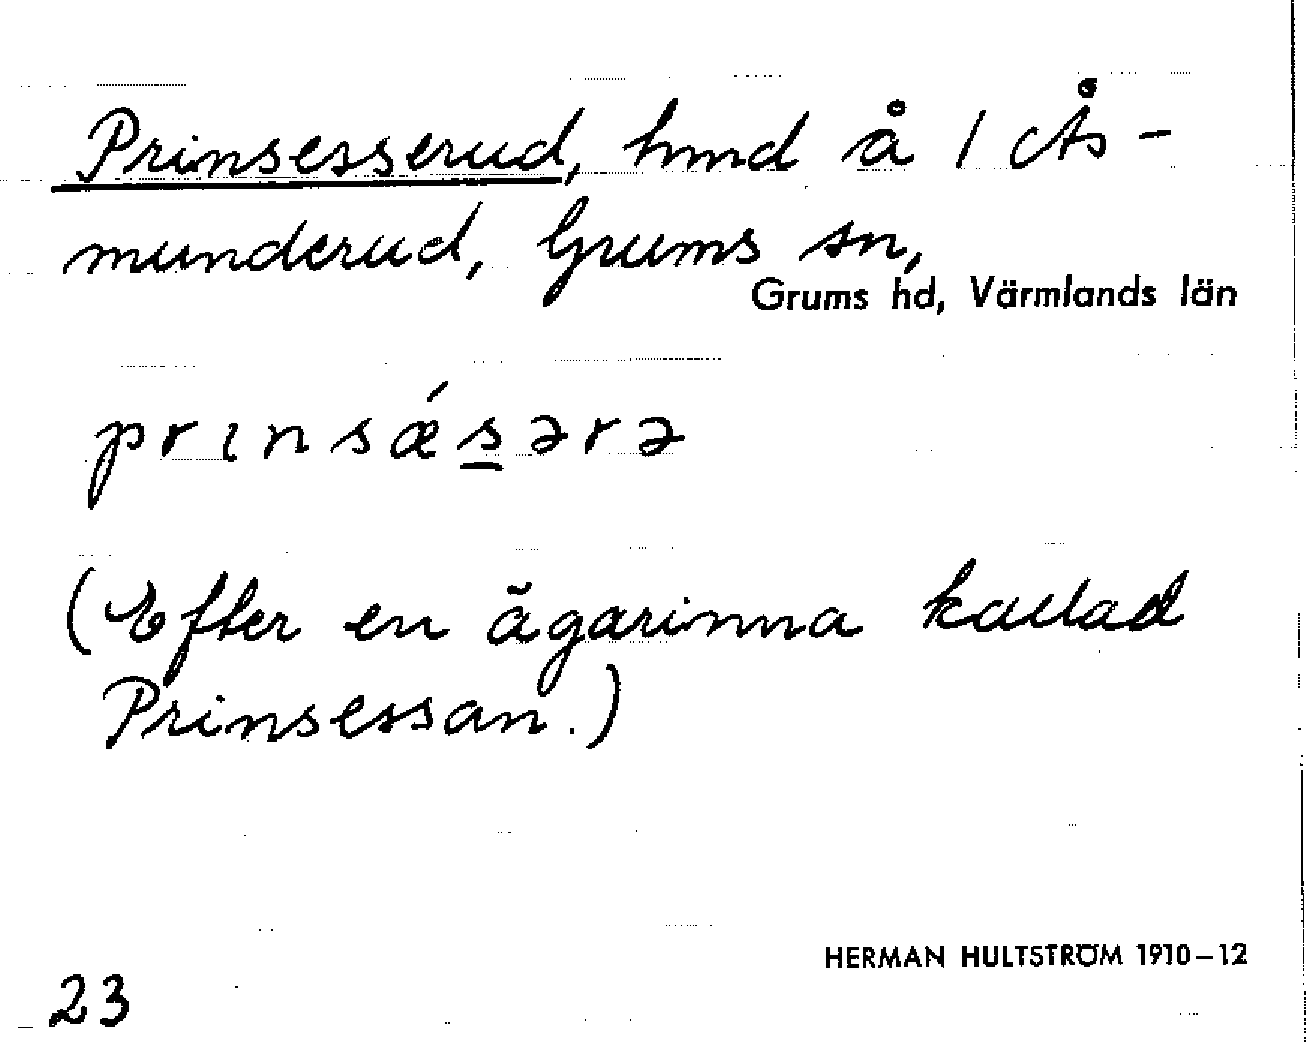 Prinsesserud, hmd å 1 Ås-
munderud, Grums sn,
Grums hd, Värmlands län
prınsǽs̲ərə
(Efter en ägarinna kallad
Prinsessan.)
HERMAN HULTSTRÖM 1910–12
23